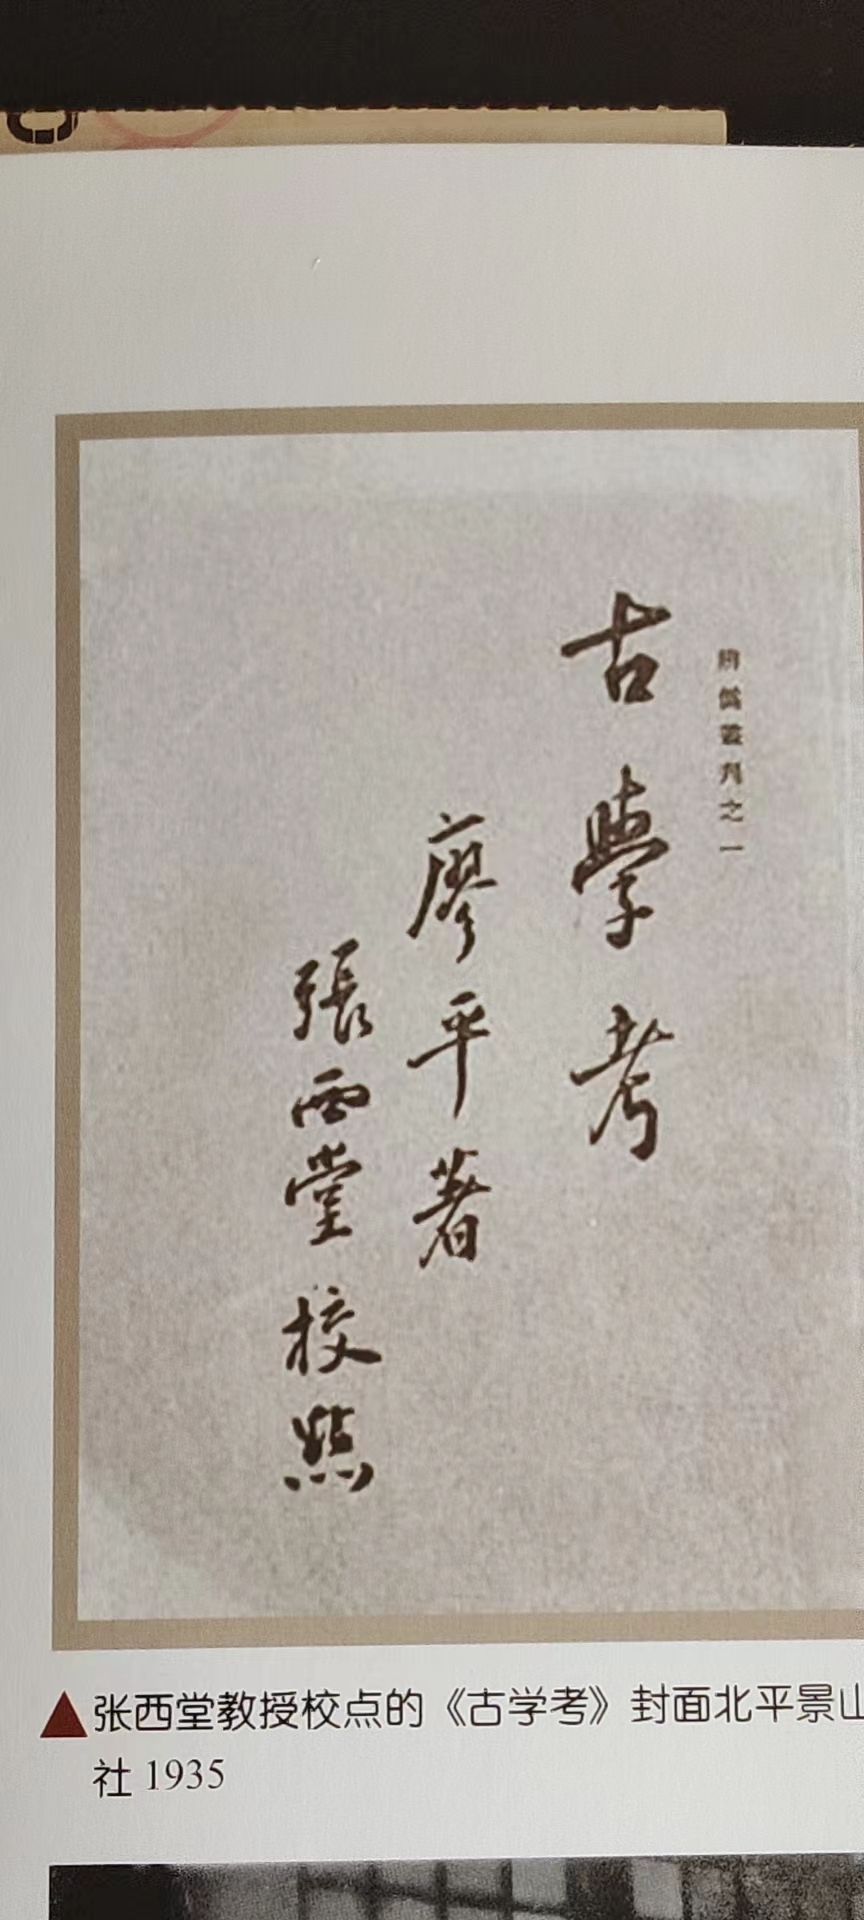 辨偽叢刊之一
古學考
廖平著
張西堂校點
▲张西堂教授校点的《古学考》封面北平景山
社 1935